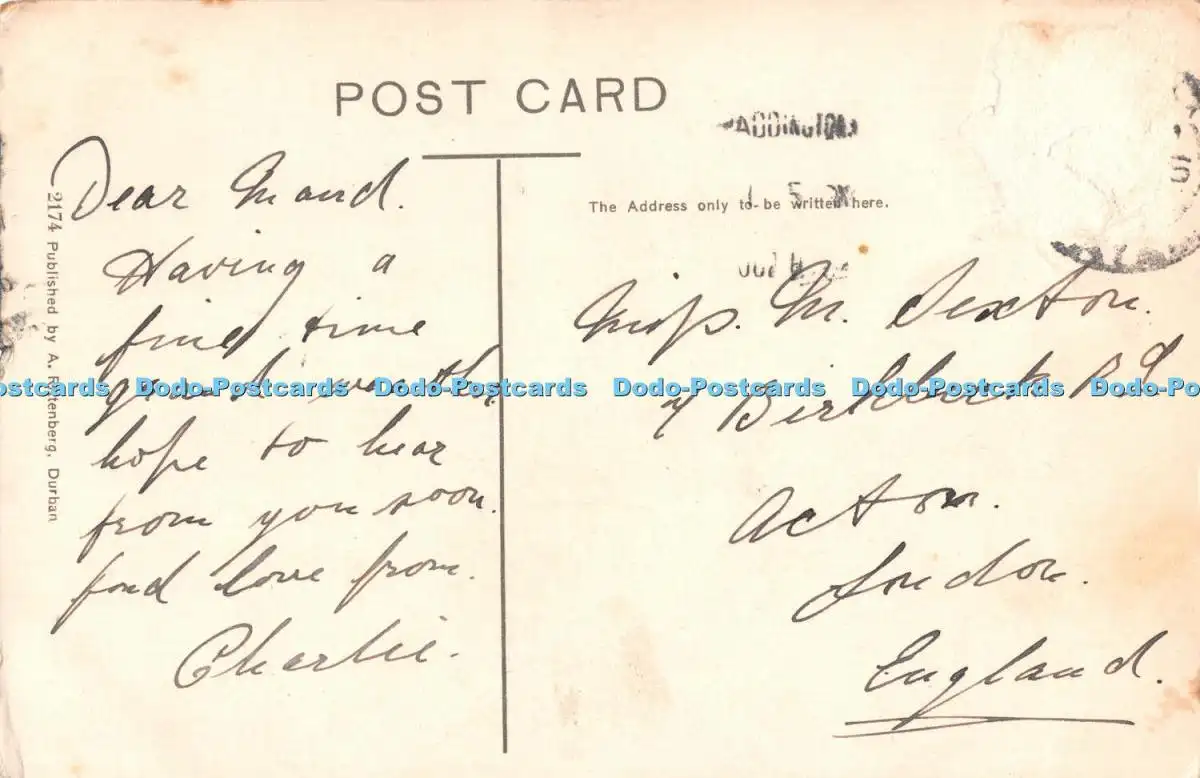 POST CARD
PADDINGTON
The Address only to be written here.
Dear Maud.
Having a
fine time
grand weather
hope to hear
from you soon.
fond love from.
Charlie.
Miss. M. Sexton.
Birkbeck Rd
Acton.
London.
England.
2174 Published by A. Rittenberg, Durban
Dodo-Postcards Dodo-Postcards Dodo-Postcards Dodo-Postcards